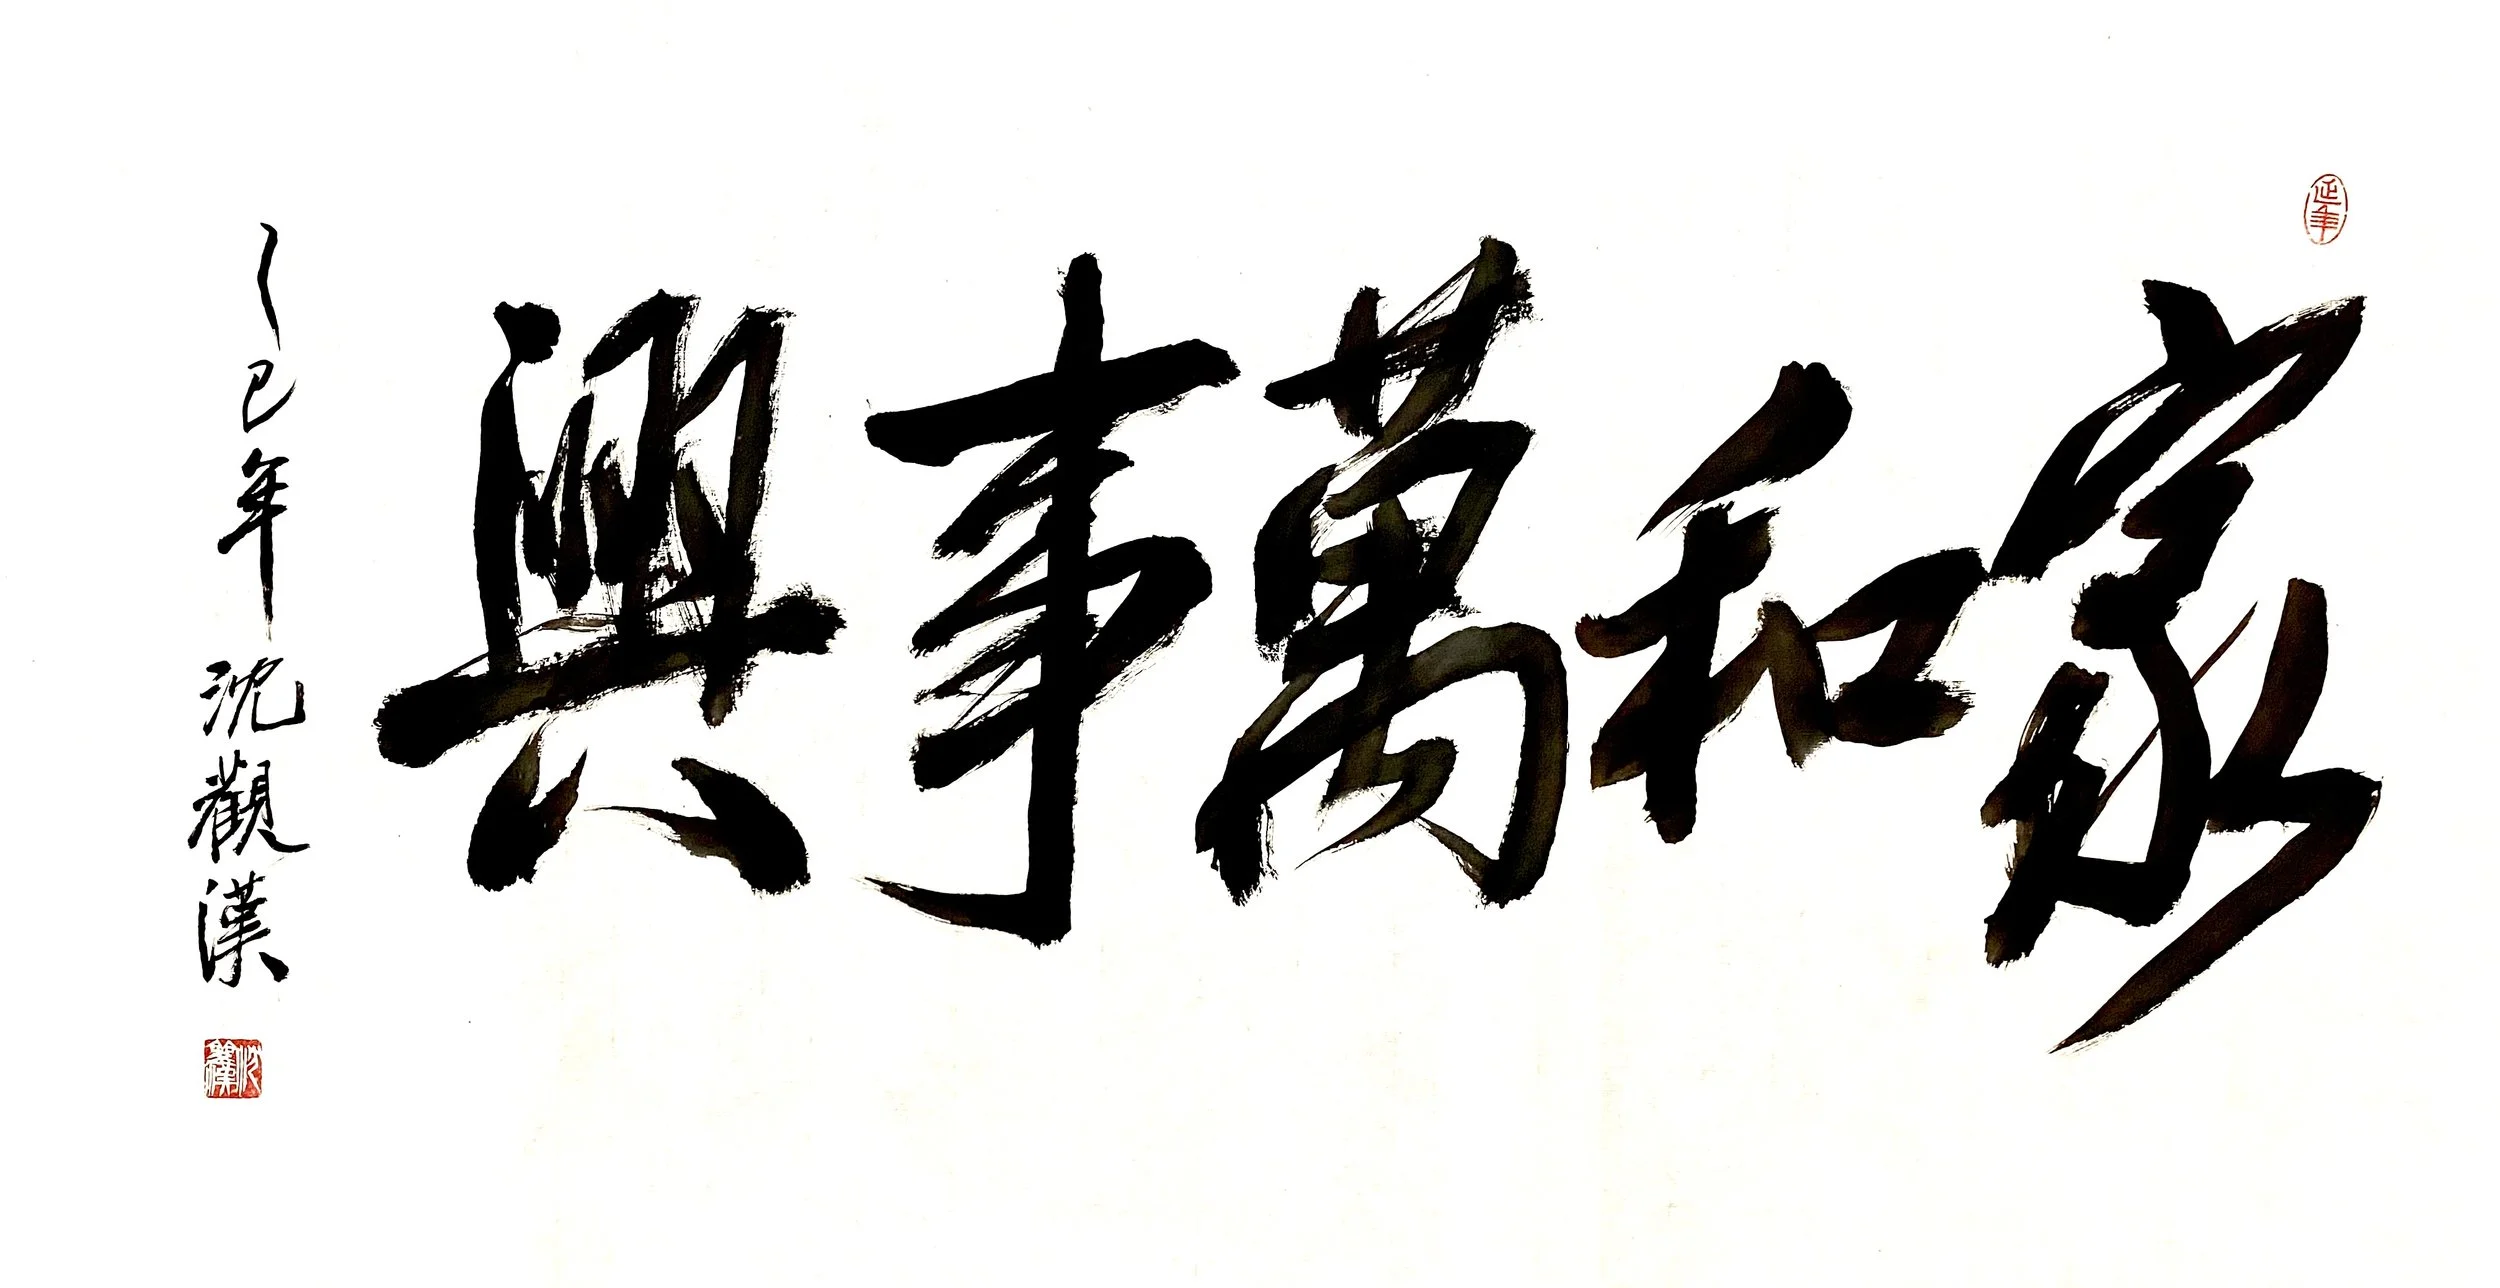 延年
家和萬事興
乙巳年 沈觀漢
沈觀漢